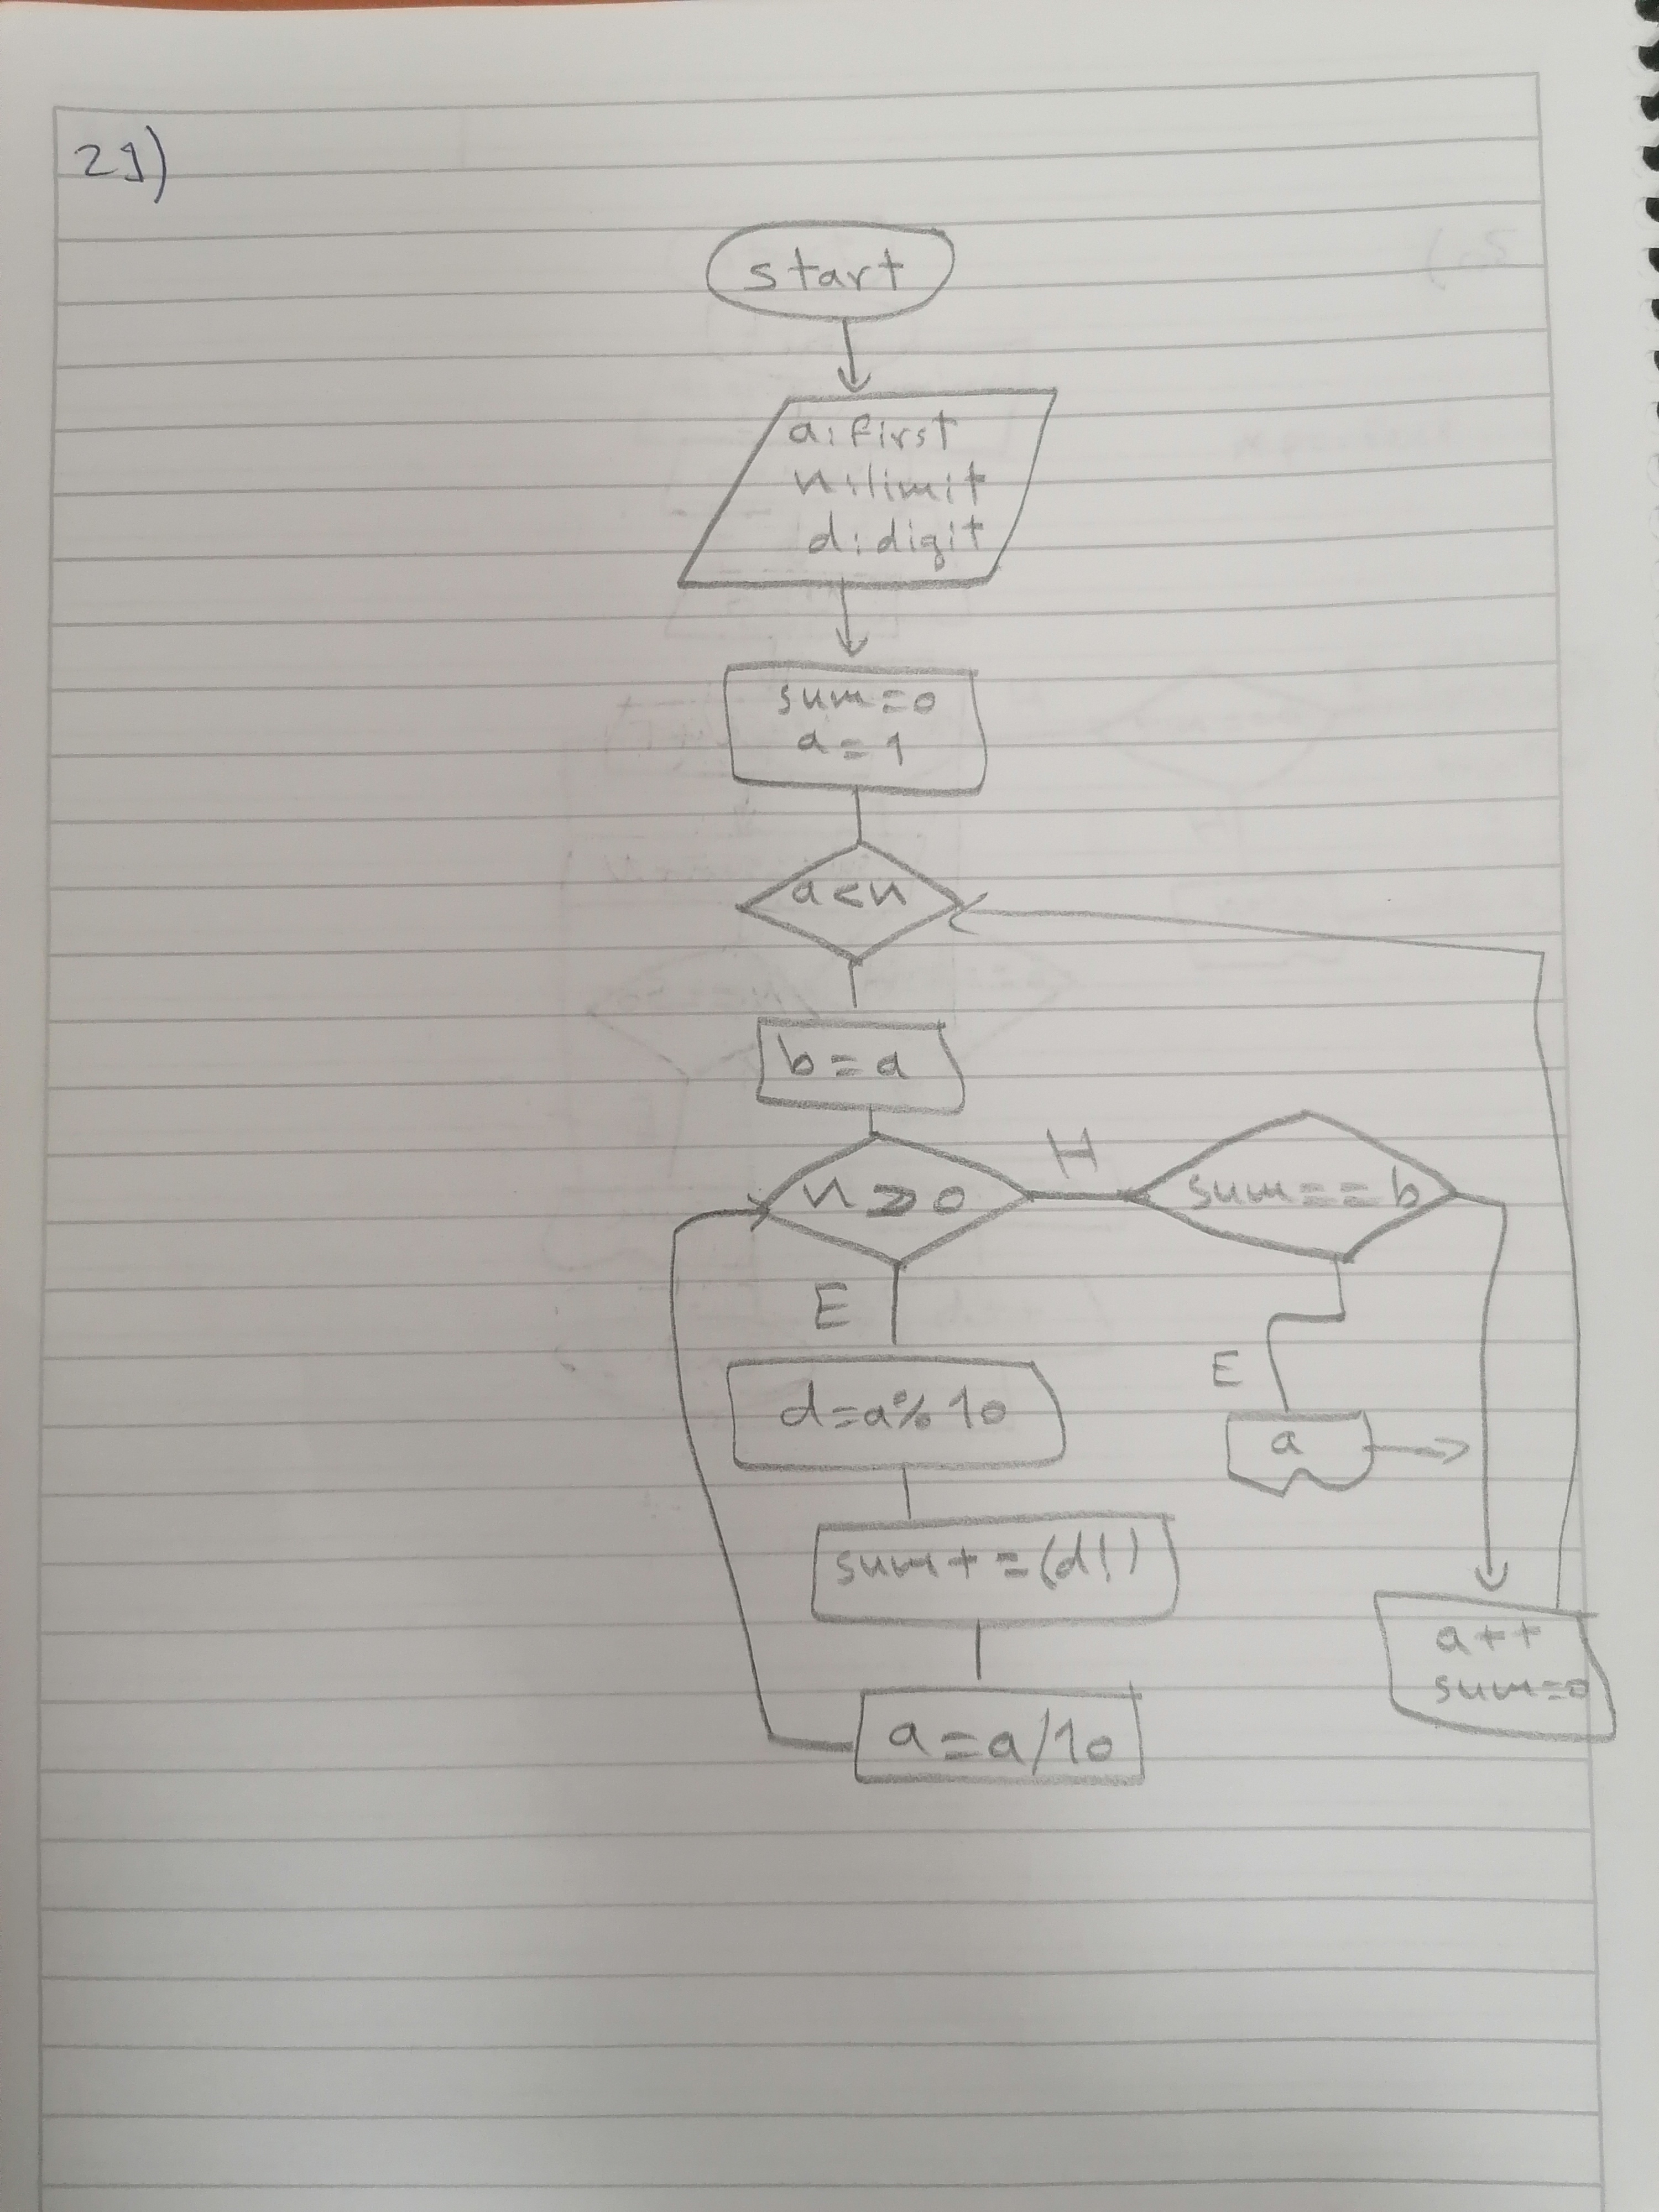 21)
start
a: first
n: limit
d: digit
sum=0
a=1
a<n
b=a
n>0
H
sum==b
E
E
d=a%10
a
sum+=(d!)
a++
sum=0
a=a/10